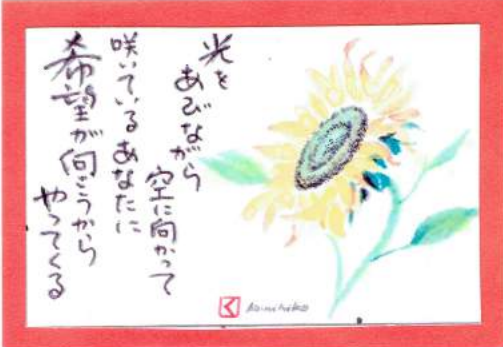 光を
あびながら
空に向かって
咲いているあなたに
希望が向こうから
やってくる